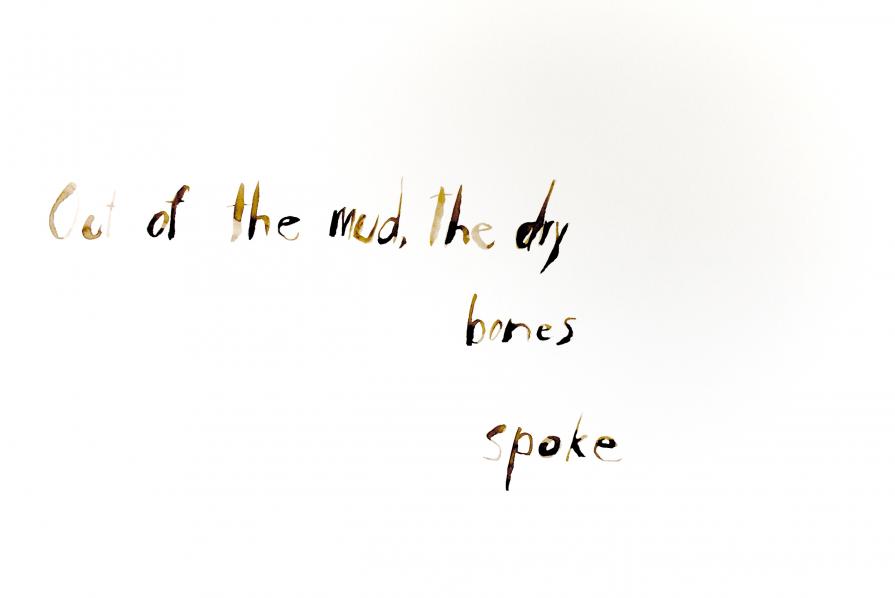 Out of the mud, the dry
bones
spoke